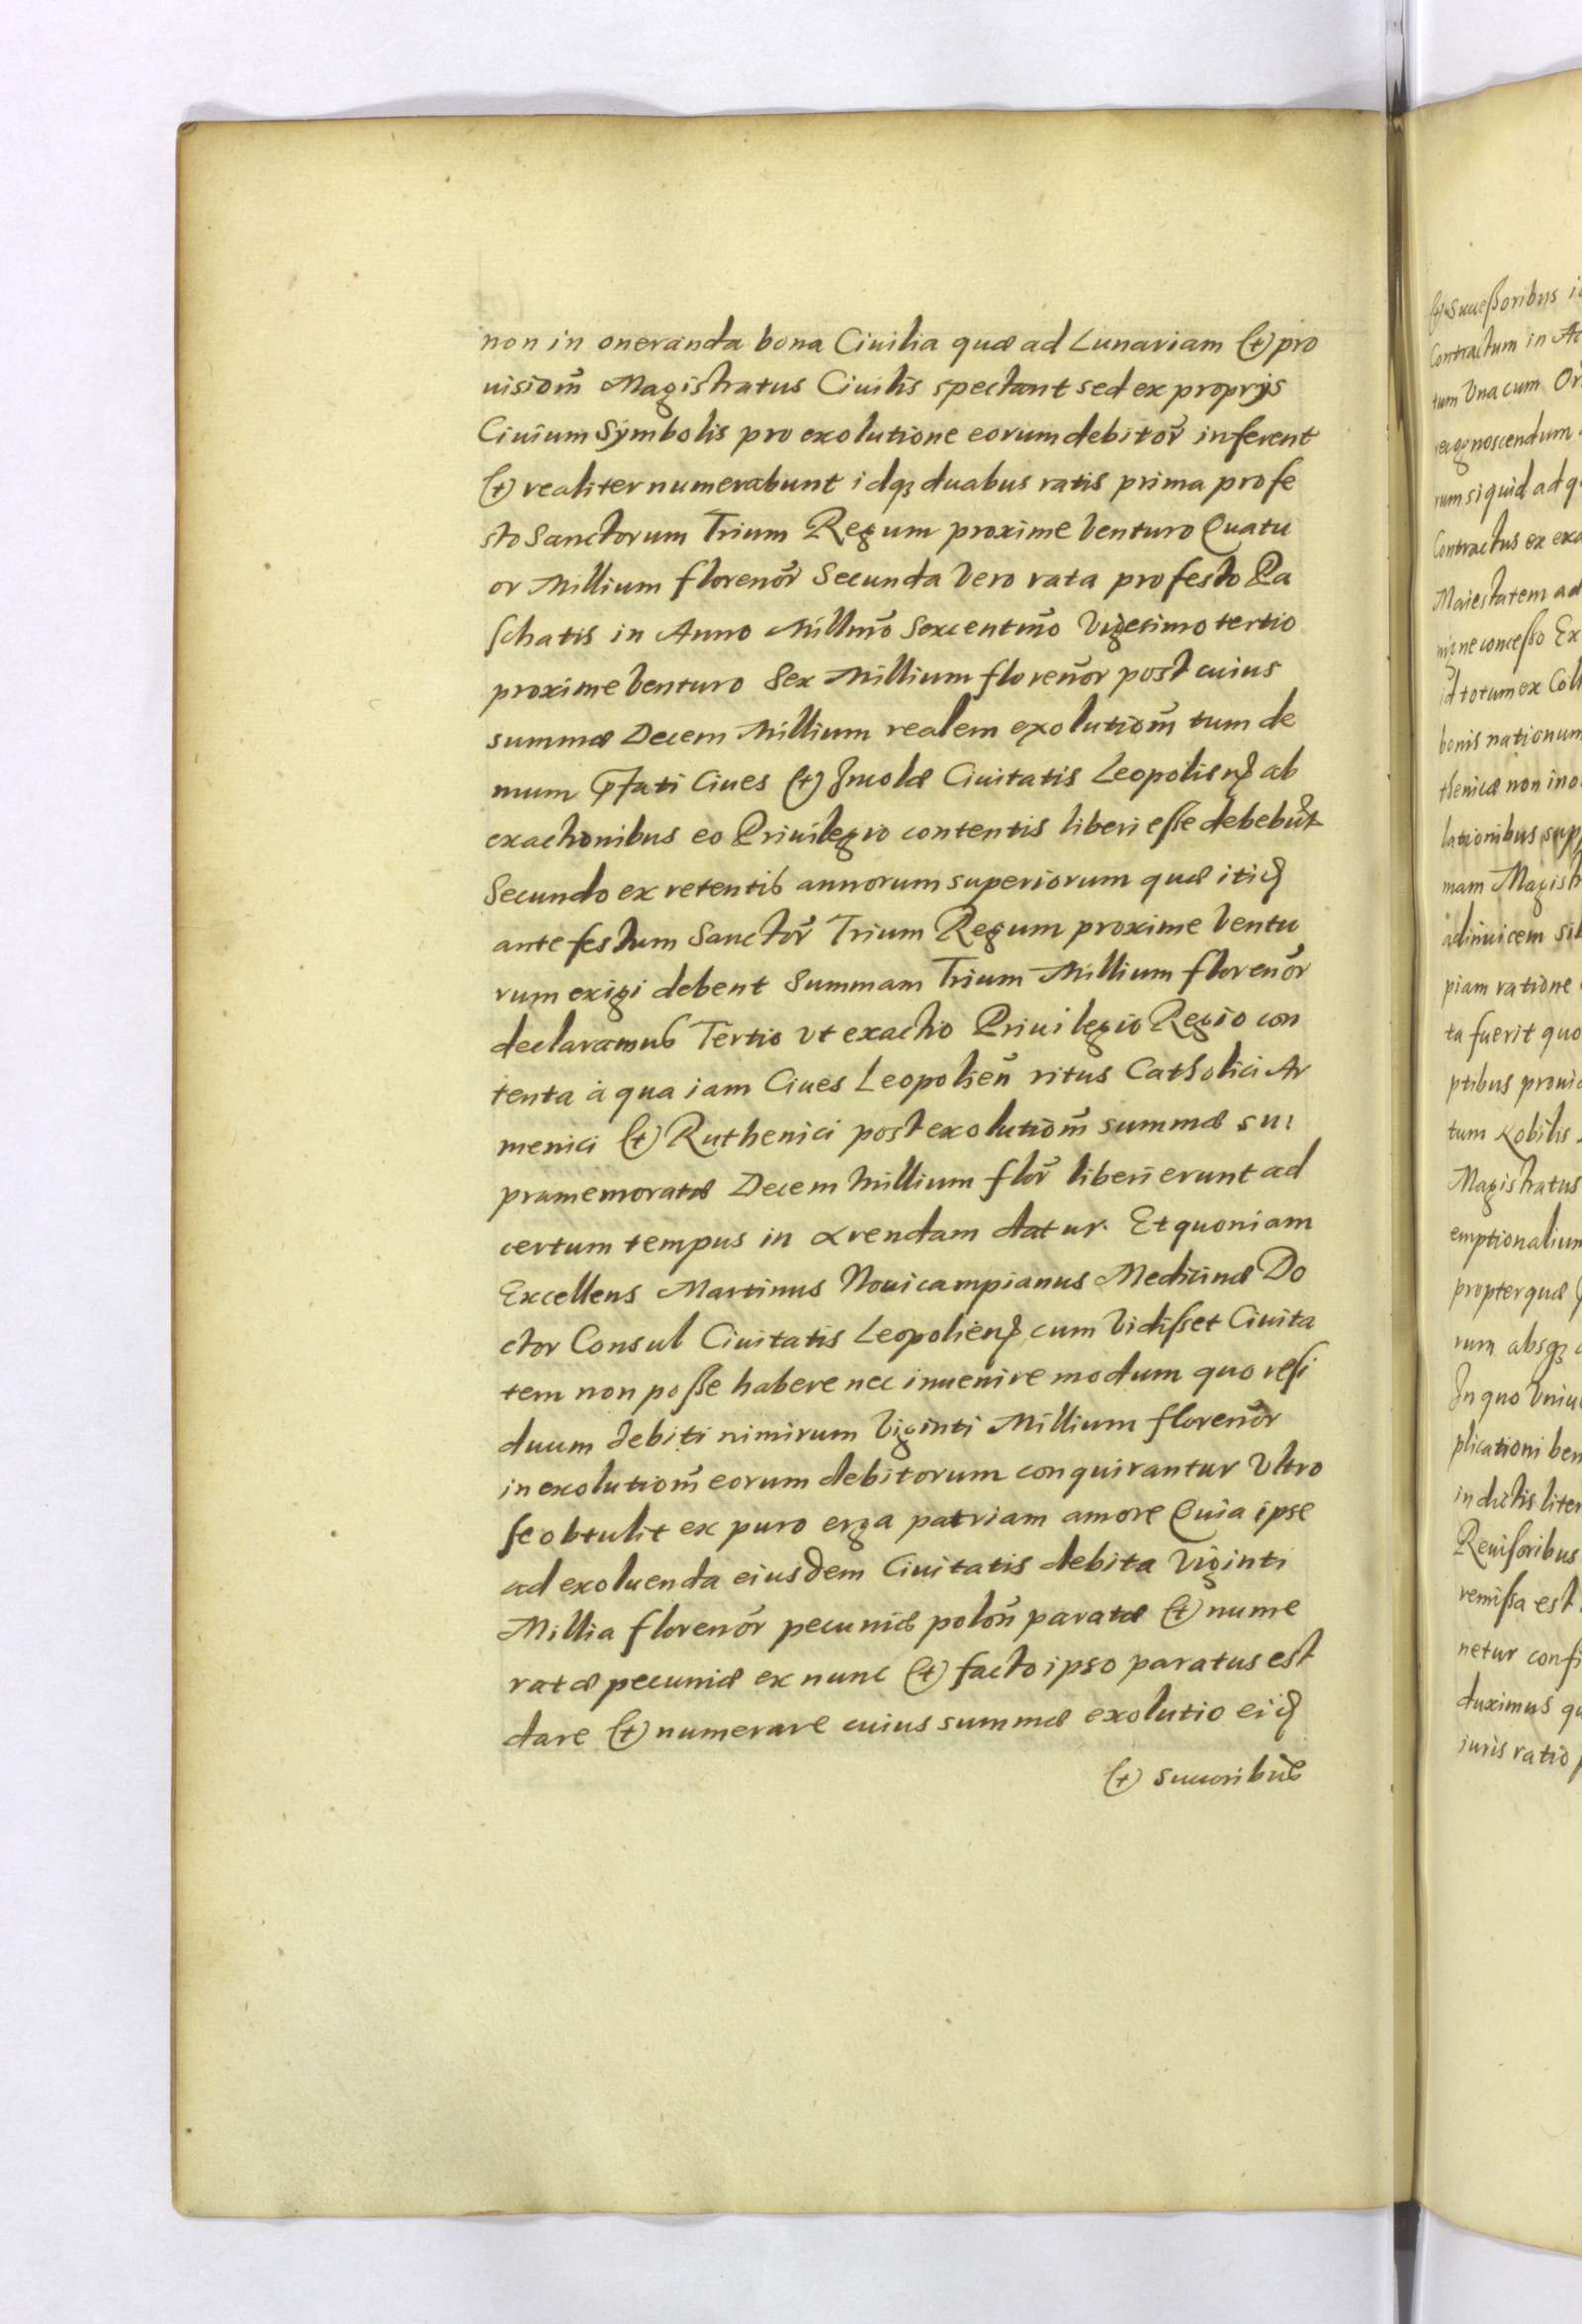 non in oneranda bona Ciuilia quæ ad Lunariam (et) pro
uisiom̃ Magistratus Ciuilis spectant sed ex proprijs
Ciuium Symbolis pro exolutione eorum debitor̃ inferent
(et) realiter numerabunt idq₃ duabus ratis prima pro fe
sto Sanctorum Trium Regum proxime Venturo Quatu
or Millium florenor̃ Secunda Vero rata pro festo Pa
schatis in Anno Millmõ Sexcentmõ Vigesimo tertio
proxime Venturo Sex Millium florenor̃ post cuius
summæ Decem Millium realem exolutiom̃ tum de
mum Pfati Ciues (et) Incolæ Ciuitatis Leopolien̄ ab
exactionibus eo Priuilegio contentis liberi esse debebũt
Secundo ex retentis annorum superiorum quæ itid
ante festum Sanctor̃ Trium Regum proxime Ventu
rum exigi debent Summam Trium Millium florenor̃
declaramus Tertio Vt exactio Priuilegio Regio con
tenta à qua iam Ciues Leopolien̄ ritus Catholici Ar
menici (et) Ruthenici post exolutiom̃ summæ su
pramemoratæ Decem Millium flor̃ liberi erunt ad
certum tempus in arendam datur. Et quoniam
Excellens Martinus Nouicampianus Medicinæ Do
ctor Consul Ciuitatis Leopolien̄ cum Vidisset Ciuita
tem non posse habere nec inuenire modum quo resi
duum debiti nimirum Viginti Millium florenor̃
in exolutiom̃ eorum debitorum conquirantur Vltro
se obtulit ex puro erga patriam amore Quia ipse
ad exoluenda eiusdem Ciuitatis debita Viginti
Millia florenor̃ pecuniæ polon̄ paratæ (et) nume
ratæ pecuniæ ex nunc (et) facto ipso paratus est
dare (et) numerare cuius summæ exolutio eid
(et) succoribus
(et) Successoribus
Contractum in
tum Vna cum
recognoscendum
rum si quid ad
Contractus ex
Maiestatem ad
concesso
id totum ex
bonis nationum
thenicæ non
lationibus
mam
adinuicem
piam ratione
ta fuerit quo
ptibus
tum Nobilis
Magistratus
emptionalium
propter quæ
rum absq₃
In quo
plicationi
in dictis
Reuisoribus
remissa est
netur
duximus
iuris ratio